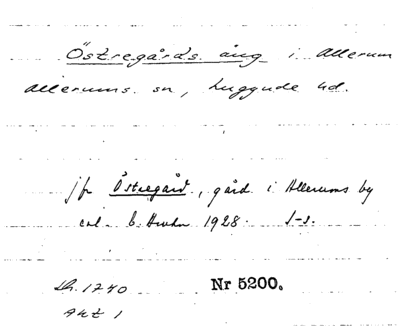 Östregårds äng i Allerum
Allerums sn, Luggude hd.
jfr Östregård, gård i Allerums by
enl. 1928. S-s.
Lh. 1240 Nr 5200.
Akt 1